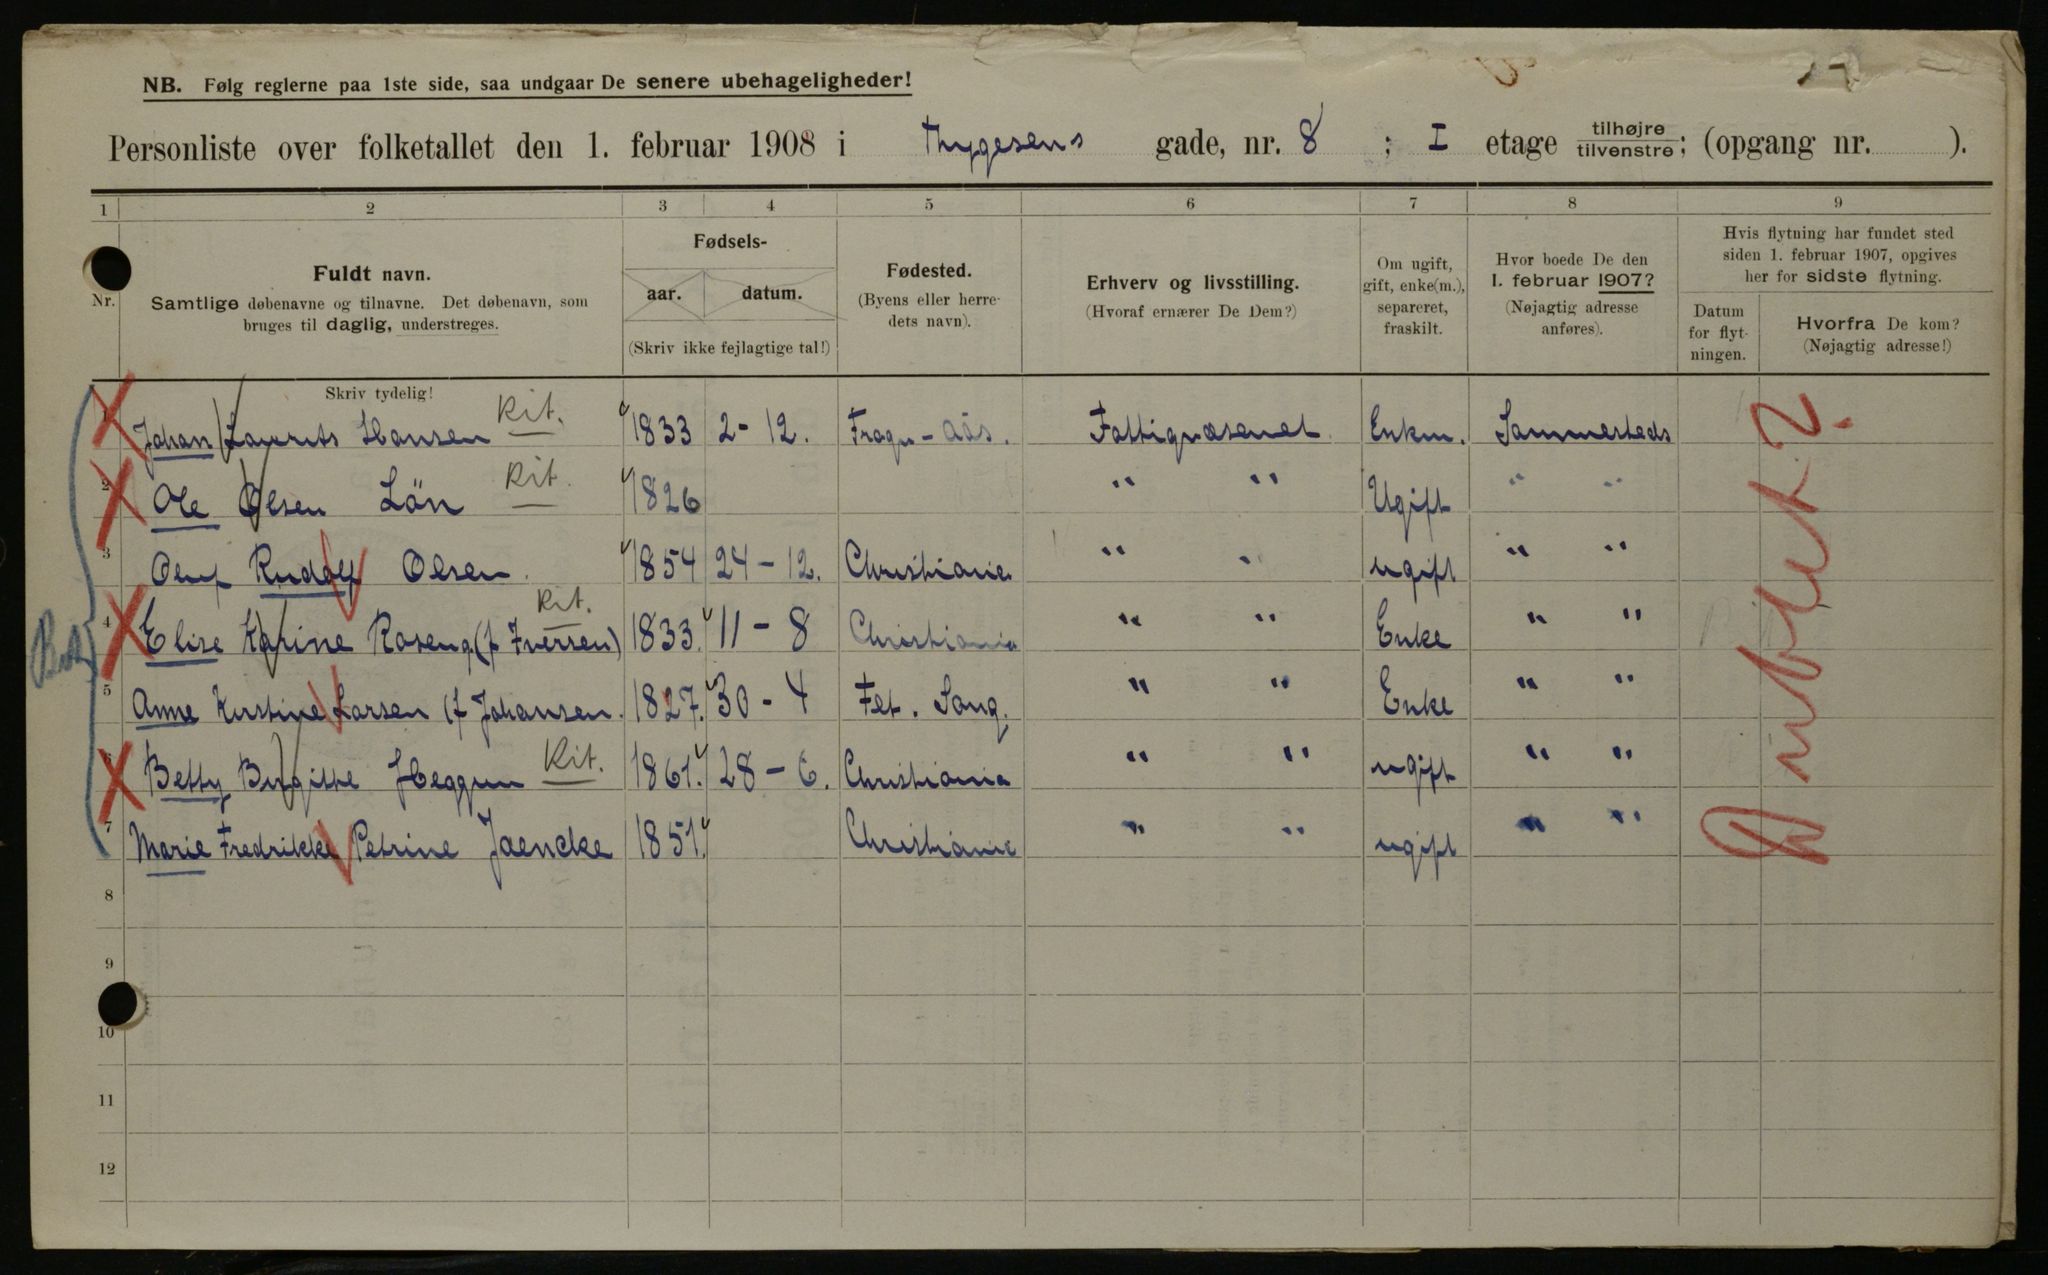 NB. Følg reglerne paa 1ste side, saa undgaar De senere ubehageligheder!
Personliste over folketallet den 1. februar 1908 i Thygesens gade, nr. 8 ; I etage tilhøjre tilvenstre; (opgang nr. ).
1 2 3 4 5 6 7 8 9
Nr.
Fuldt navn.
Samtlige døbenavne og tilnavne. Det døbenavn, som
bruges til daglig, understreges.
Skriv tydelig!
Fødsels-
aar. datum.
(Skriv ikke fejlagtige tal!)
Fødested.
(Byens eller herre-
dets navn).
Erhverv og livsstilling.
(Hvoraf ernærer De Dem?)
Om ugift,
gift, enke(m.),
separeret,
fraskilt.
Hvor boede De den
1. februar 1907?
(Nøjagtig adresse
anføres).
Hvis flytning har fundet sted
siden 1. februar 1907, opgives
her for sidste flytning.
Datum
for flyt-
ningen.
Hvorfra De kom?
(Nøjagtig adresse!)
1 Johan Laurits Hansen Kit. 1833 2-12. Frogn-Aas. Fattigvæsenet Enkm. Sammesteds
2 Ole Olsen Lön Kit. 1826 " " Ugift " "
3 Oluf Rudolf Olsen. 1854 24-12. Christiania " " ugift " "
4 Elise Karine Roseng (f Iversen) Kit. 1833. 11-8 Christiania " " Enke " "
5 Anne Kirstine Larsen (f Johansen. 1827. 30-4 Fet. Song. " " Enke " "
6 Betty Birgitte Heggun Kit. 1861. 28-6. Christiania " " ugift " "
7 Marie Fredrikke Petrine Jaencke 1851. Christiania " " ugift " "
8
9
10
11
12